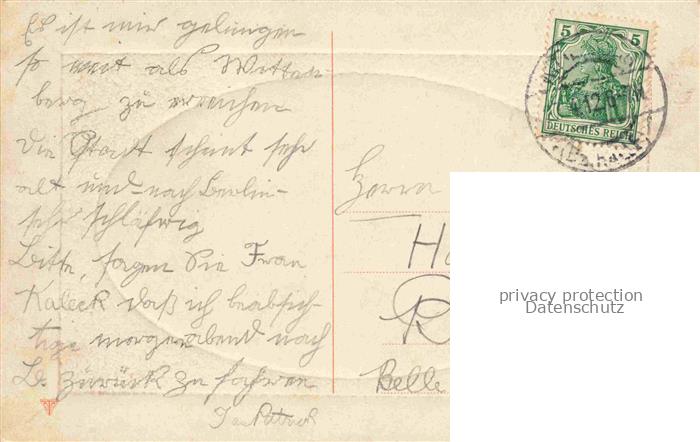 Es ist mir gelungen
so weit als Witten-
berg zu erreichen
Die Stadt scheint sehr
alt und nach Berlin
sehr schläfrig
Bitte, sagen Sie Frau
Kaleck daß ich beabsich-
tige morgenabend nach
B. zurück zu fahren
Herrn
Belle
5 5
DEUTSCHES REICH
privacy protection
Datenschutz